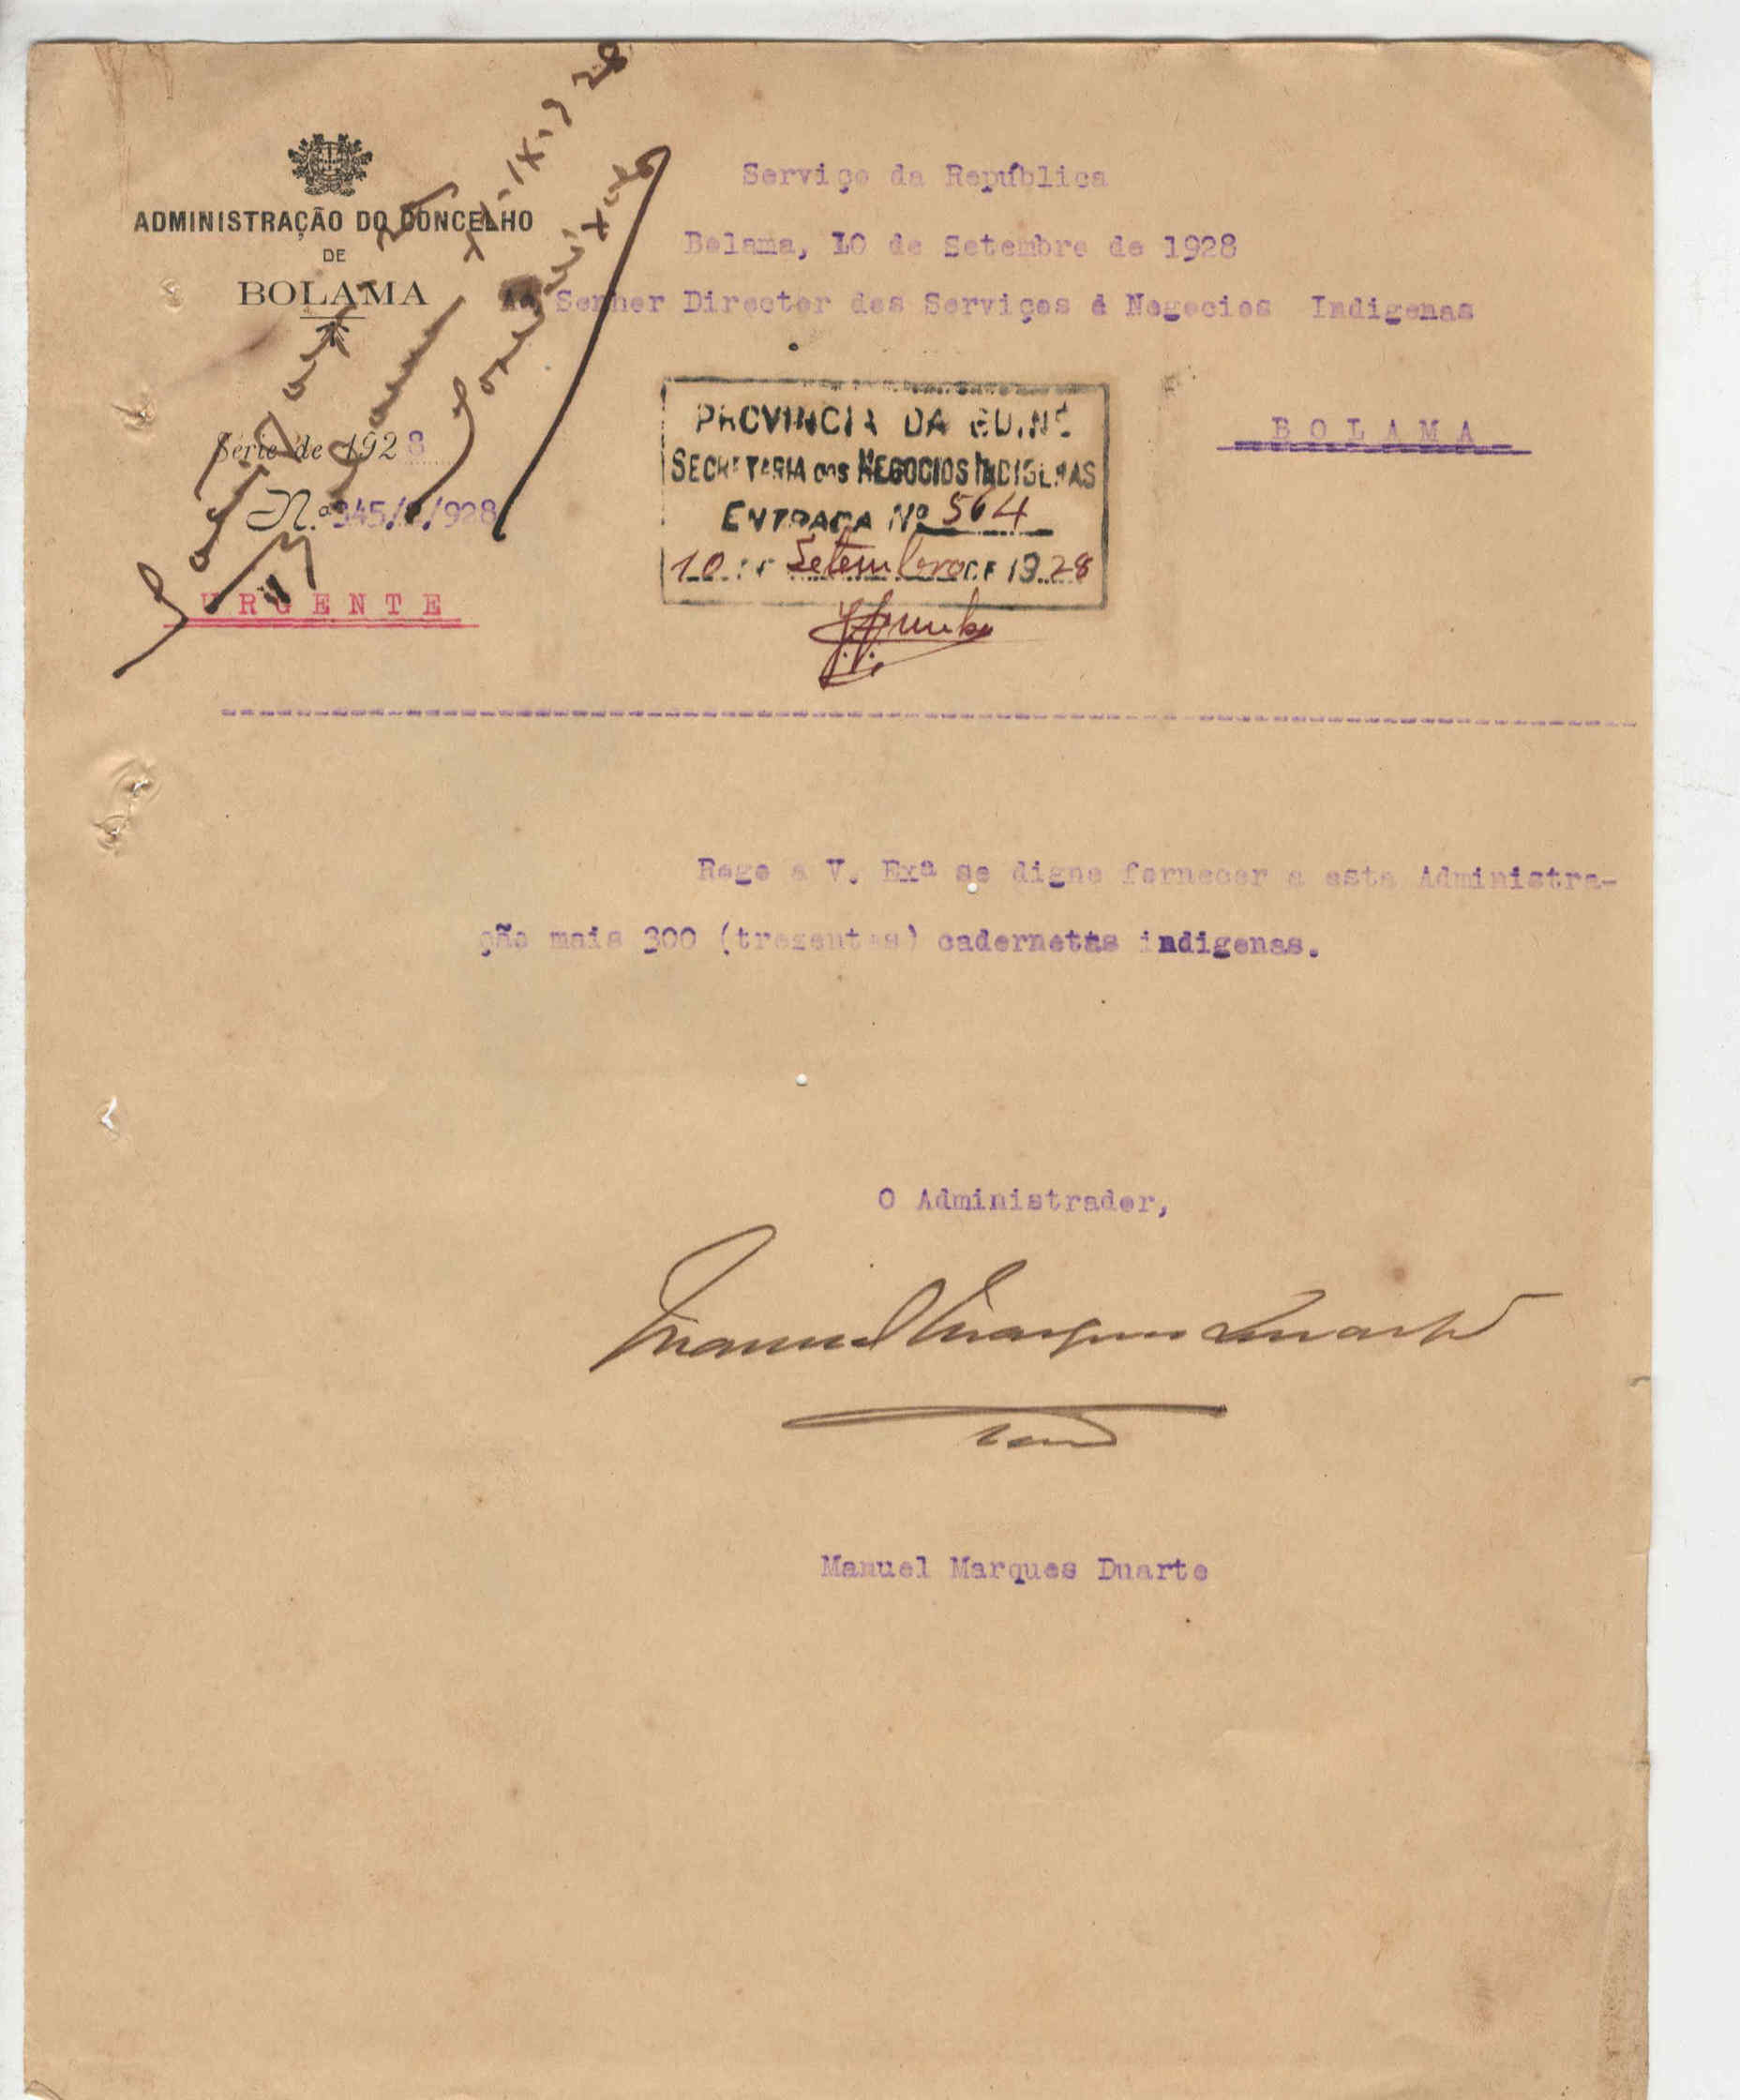 ADMINISTRAÇÃO DO CONCELHO
DE
BOLAMA
Série de 1928
N.º 945/ /928
URGENTE
Serviço da República
Bolama, 10 de Setembro de 1928
Ao Senhor Director dos Serviços e Negocios Indigenas
BOLAMA
PROVINCIA DA GUINÉ
SECRETARIA DOS NEGOCIOS INDIGENAS
ENTRADA Nº 564
10 DE Setembro DE 1928
Rogo a V. Exª se digne fornecer a esta Administra-
ção mais 300 (trezentas) cadernetas indigenas.
O Administrador,
Manuel Marques Duarte
Manuel Marques Duarte